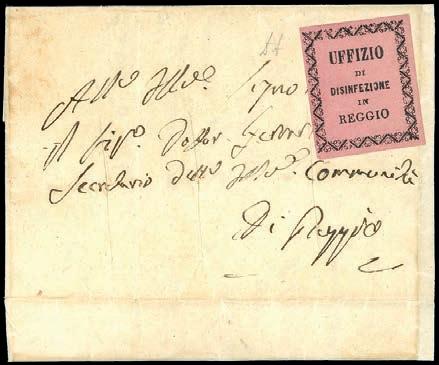 UFFIZIO
DI
DISINFEZIONE
IN
REGGIO
All'
Il Sig.r Dottor
Secretario dell' Comunità
Di Reggio